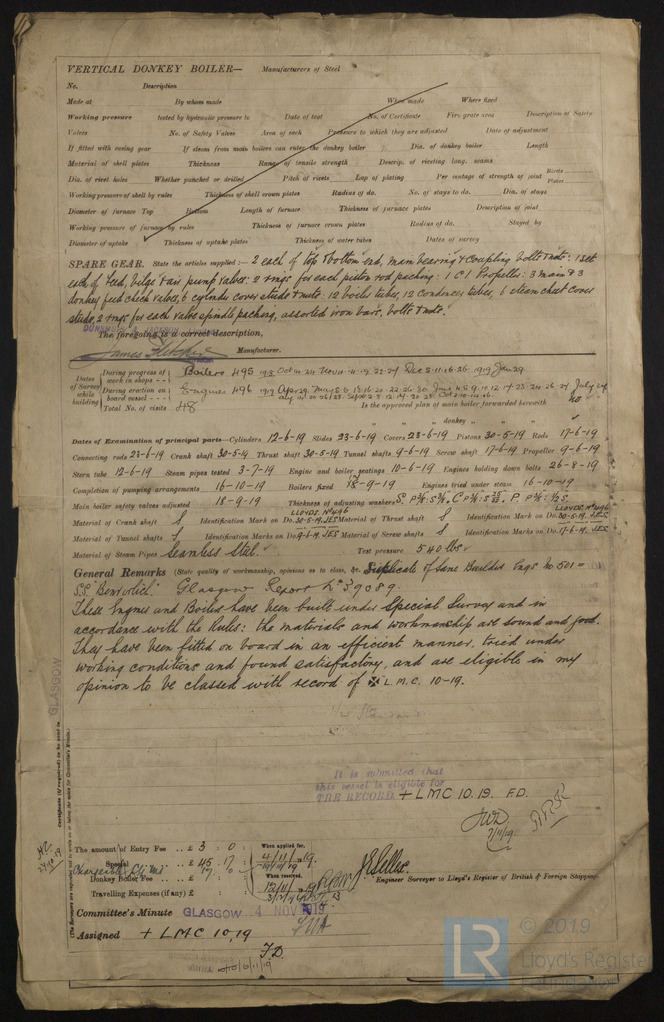 VERTICAL DONKEY BOILER— Manufacturers of Steel
No. Description
Made at By whom made When made Where fixed
Working pressure tested by hydraulic pressure to Date of test No. of Certificate Fire grate area Description of Safety
Valves No. of Safety Valves Area of each Pressure to which they are adjusted Date of adjustment
If fitted with easing gear If steam from main boilers can enter the donkey boiler Dia. of donkey boiler Length
Material of shell plates Thickness Range of tensile strength Descrip. of riveting long. seams
Dia. of rivet holes Whether punched or drilled Pitch of rivets Lap of plating Per centage of strength of joint Rivets Plates
Working pressure of shell by rules Thickness of shell crown plates Radius of do. No. of stays to do. Dia. of stays
Diameter of furnace Top Bottom Length of furnace Thickness of furnace plates Description of joint
Working pressure of furnace by rules Thickness of furnace crown plates Radius of do. Stayed by
Diameter of uptake Thickness of uptake plates Thickness of water tubes Dates of survey
SPARE GEAR. State the articles supplied:— 2 each of top & bottom end, main bearing & coupling bolts & nuts: 1 set
each of feed, bilge & air pump valves: 2 rings for each piston rod packing: 1 C I Propeller: 3 main & 3
donkey feed check valves, 6 cylinder cover studs & nuts: 12 boiler tubes, 12 condenser tubes, 6 steam chest cover
studs, 2 rings for each valve spindle packing, assorted iron bars, bolts & nuts.
The foregoing is a correct description,
James Manufacturer.
Dates of Survey while building
During progress of work in shops - - Boilers 495 1918
During erection on board vessel - - - Engines 496 1919
Total No. of visits 48 Is the approved plan of main boiler forwarded herewith no
" " " donkey " " "
Dates of Examination of principal parts—Cylinders 12-6-19 Slides 23-6-19 Covers 23-6-19 Pistons 30-5-19 Rods 17-6-19
Connecting rods 23-6-19 Crank shaft 30-5-19 Thrust shaft 30-5-19 Tunnel shafts 9-6-19 Screw shaft 17-6-19 Propeller 9-6-19
Stern tube 12-6-19 Steam pipes tested 3-7-19 Engine and boiler seatings 10-6-19 Engines holding down bolts 26-8-19
Completion of pumping arrangements 16-10-19 Boilers fixed 18-9-19 Engines tried under steam 16-10-19
Main boiler safety valves adjusted 18-9-19 Thickness of adjusting washers
Material of Crank shaft S Identification Mark on Do. LLOYDS. No 496 30-5-19. JES Material of Thrust shaft S Identification Mark on Do. LLOYDS. No 496 30-5-19. JES
Material of Tunnel shafts S Identification Marks on Do. 9-6-19. JES Material of Screw shafts S Identification Marks on Do. 17-6-19. JES
Material of Steam Pipes Seamless Steel. Test pressure 540 lbs
General Remarks (State quality of workmanship, opinions as to class, &c. Duplicate of same Builders Engs No 501 =
S.S. Benvorlich. Glasgow Report No 39089.
These Engines and Boilers have been built under Special Survey and in
accordance with the Rules: the materials and workmanship are sound and good.
They have been fitted on board in an efficient manner, tried under
working conditions and found satisfactory, and are eligible in my
opinion to be classed with record of ✠ L.M.C. 10-19.
It is submitted that
this vessel is eligible for
THE RECORD + LMC 10.19. F.D.
7/11/19.
GLASGOW
Certificate (if required) to be sent to
(The Surveyors are requested not to write on or below the space for Committee's Minute.)
The amount of Entry Fee .. £ 3 : 0 : When applied for,
Special .. £ 45 : 7 : 4/11/19.
Donkey Boiler Fee .. £ When received,
Travelling Expenses (if any) £ 12/11/19
Engineer Surveyor to Lloyd's Register of British & Foreign Shipping.
Committee's Minute GLASGOW 4 NOV 1919
Assigned + LMC 10,19
F.D.
© 2019
LR
Lloyd's Register
Foundation